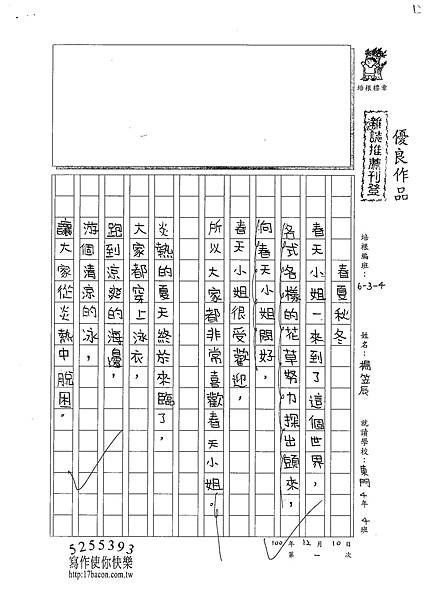 優良作品
雜誌推薦刊登
培根標章
培根編班：6-3-4
姓名：楊笠辰
就讀學校：東門4年4班
100年12月10日
第一次
春夏秋冬
春天小姐一來到了這個世界，
各式各樣的花草努力探出頭來，
向春天小姐問好，
春天小姐很受歡迎，
所以大家都非常喜歡春天小姐。
炎熱的夏天終於來臨了，
大家都穿上泳衣，
跑到涼爽的海邊，
游個清涼的泳，
讓大家從炎熱中脫困。
5255393
寫作使你快樂
http:17bacon.com.tw